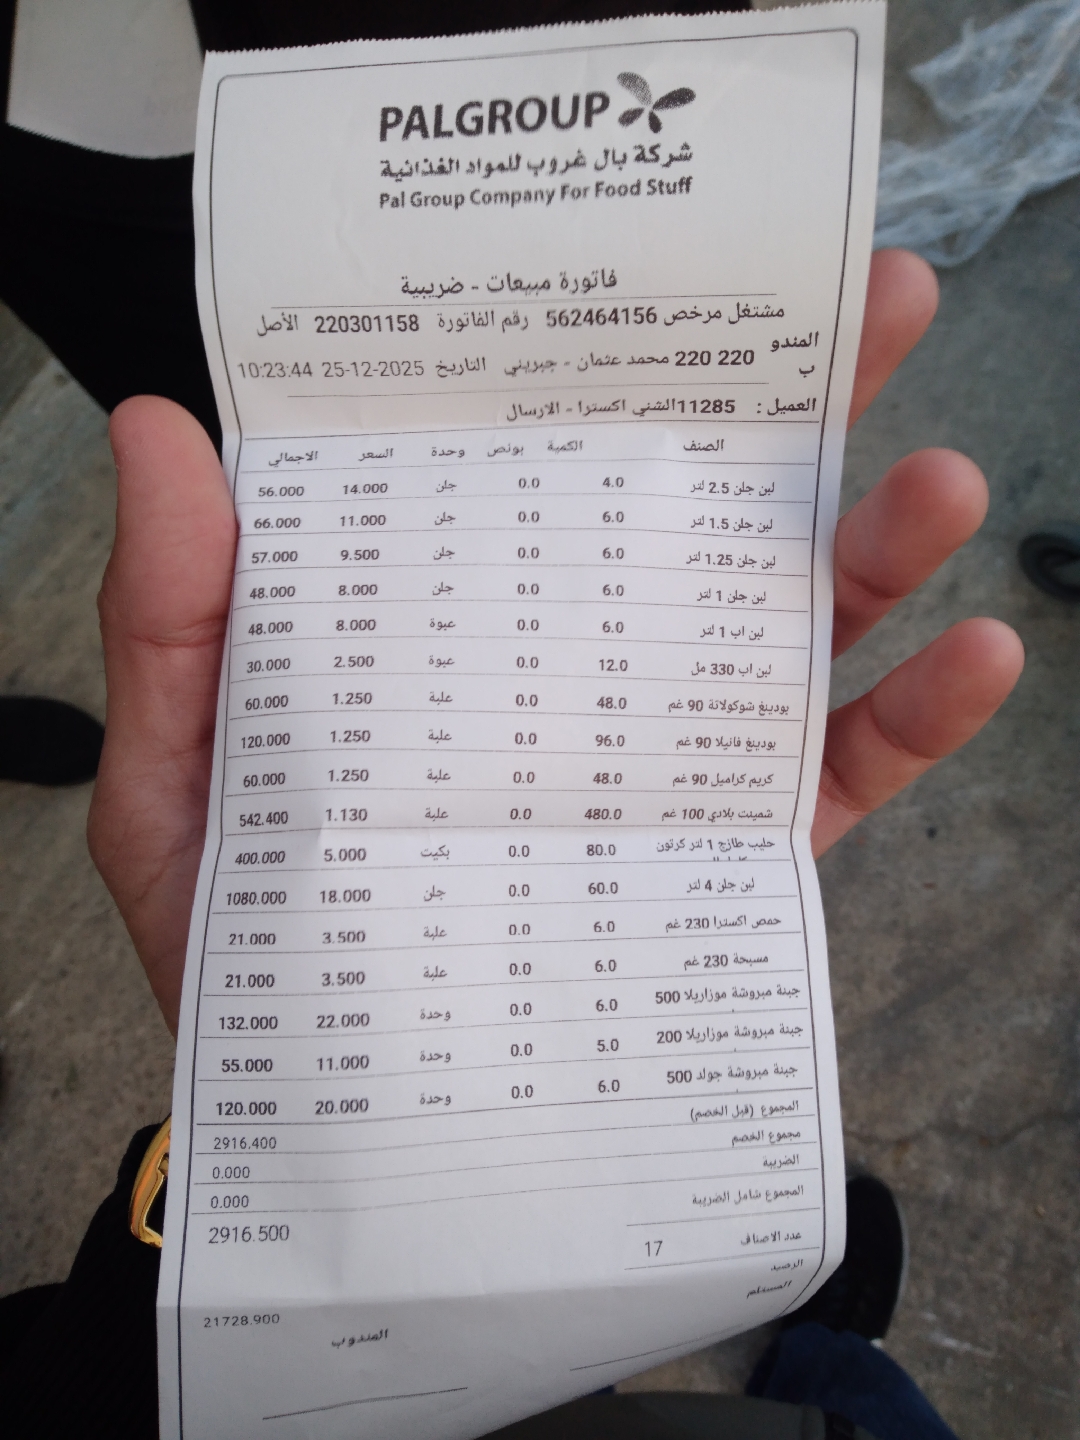 PALGROUP
شركة بال غروب للمواد الغذائية
Pal Group Company For Food Stuff
فاتورة مبيعات - ضريبية
مشتغل مرخص 562464156 رقم الفاتورة 220301158 الأصل
المندوب 220 220 محمد عثمان - جبريني التاريخ 25-12-2025 10:23:44
العميل : 11285 الشني اكسترا - الارسال
الصنف الكمية بونص وحدة السعر الاجمالي
لبن جلن 2.5 لتر 4.0 0.0 جلن 14.000 56.000
لبن جلن 1.5 لتر 6.0 0.0 جلن 11.000 66.000
لبن جلن 1.25 لتر 6.0 0.0 جلن 9.500 57.000
لبن جلن 1 لتر 6.0 0.0 جلن 8.000 48.000
لبن اب 1 لتر 6.0 0.0 عبوة 8.000 48.000
لبن اب 330 مل 12.0 0.0 عبوة 2.500 30.000
بودينغ شوكولاتة 90 غم 48.0 0.0 علبة 1.250 60.000
بودينغ فانيلا 90 غم 96.0 0.0 علبة 1.250 120.000
كريم كراميل 90 غم 48.0 0.0 علبة 1.250 60.000
شمينت بلادي 100 غم 480.0 0.0 علبة 1.130 542.400
حليب طازج 1 لتر كرتون 80.0 0.0 بكيت 5.000 400.000
لبن جلن 4 لتر 60.0 0.0 جلن 18.000 1080.000
حمص اكسترا 230 غم 6.0 0.0 علبة 3.500 21.000
مسبحة 230 غم 6.0 0.0 علبة 3.500 21.000
جبنة مبروشة موزاريلا 500 6.0 0.0 وحدة 22.000 132.000
جبنة مبروشة موزاريلا 200 5.0 0.0 وحدة 11.000 55.000
جبنة مبروشة جولد 500 6.0 0.0 وحدة 20.000 120.000
المجموع (قبل الخصم) 2916.400
مجموع الخصم 0.000
الضريبة 0.000
المجموع شامل الضريبة 2916.500
عدد الاصناف 17
الرصيد 21728.900
المستلم المندوب